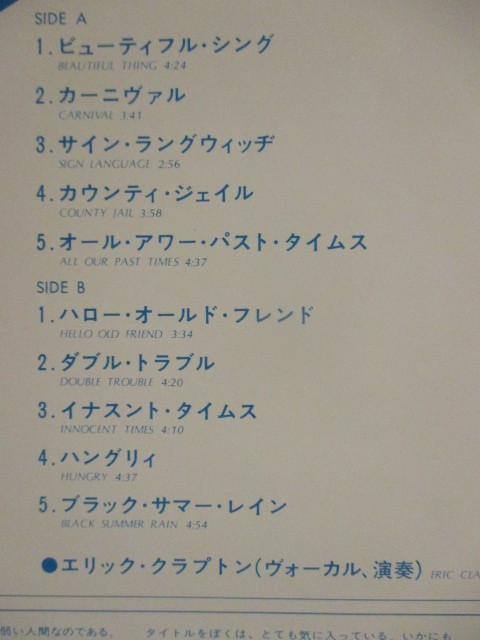 SIDE A
1.ビューティフル・シング
BEAUTIFUL THING 4:24
2.カーニヴァル
CARNIVAL 3:41
3.サイン・ラングウィッヂ
SIGN LANGUAGE 2:56
4.カウンティ・ジェイル
COUNTY JAIL 3:58
5.オール・アワー・パスト・タイムス
ALL OUR PAST TIMES 4:37
SIDE B
1.ハロー・オールド・フレンド
HELLO OLD FRIEND 3:34
2.ダブル・トラブル
DOUBLE TROUBLE 4:20
3.イナスント・タイムス
INNOCENT TIMES 4:10
4.ハングリィ
HUNGRY 4:37
5.ブラック・サマー・レイン
BLACK SUMMER RAIN 4:54
●エリック・クラプトン(ヴォーカル、演奏) ERIC CLA
弱い人間なのである。 タイトルをぼくは、とても気に入っている。いかにも